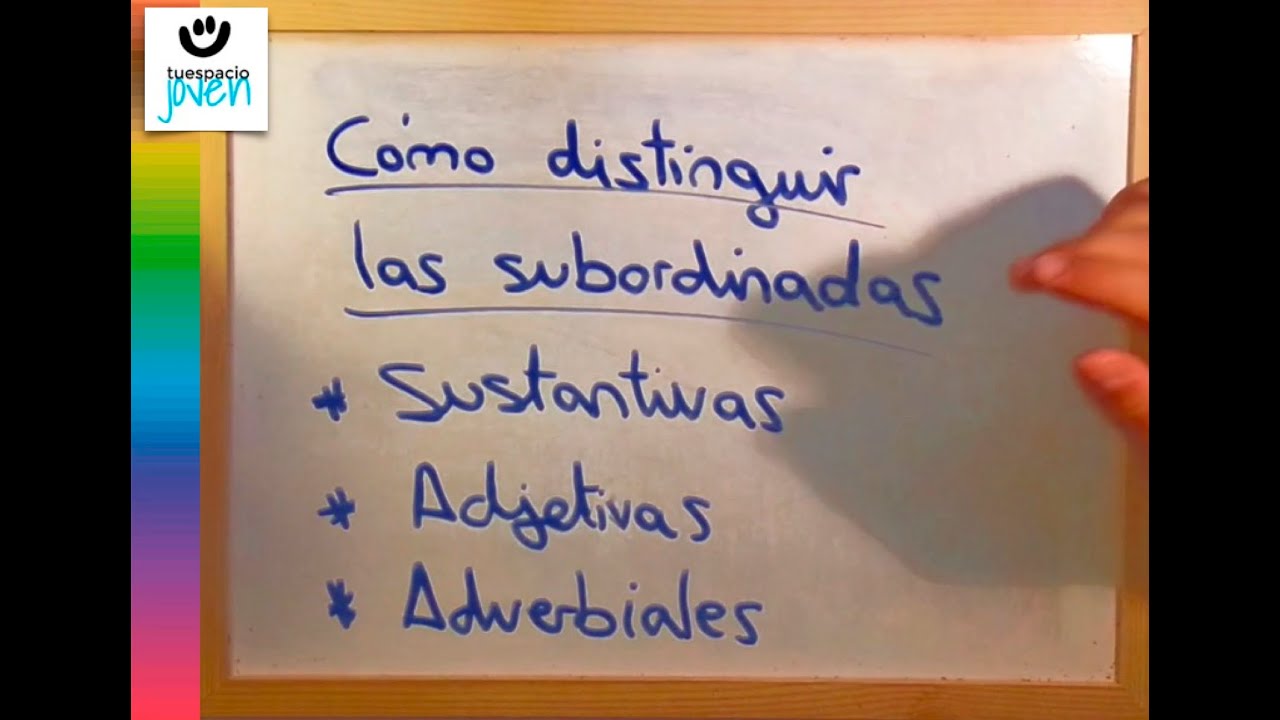 tuespacio
joven
Cómo distinguir
las subordinadas
* Sustantivas
* Adjetivas
* Adverbiales